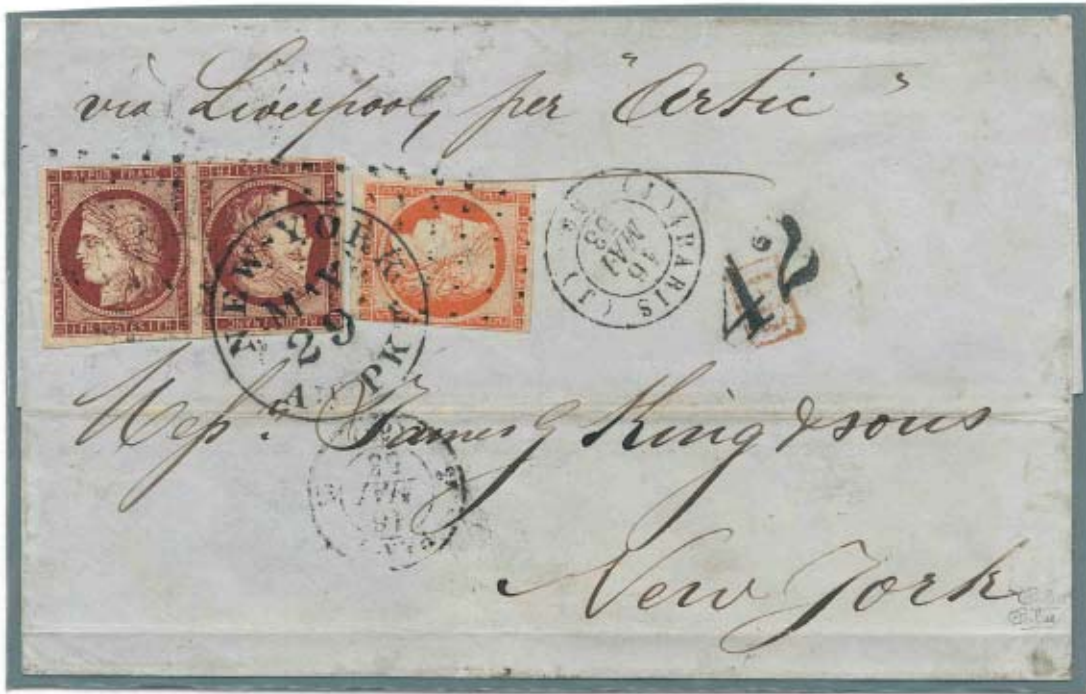 via Liverpool, per "Artic"
REPUB. FRANC.
1F POSTES 1F
NEW-YORK
MAY
29
AM. PKT.
(J) PARIS (J)
16
MAI
53
42
Mess. James G King & sons
New York